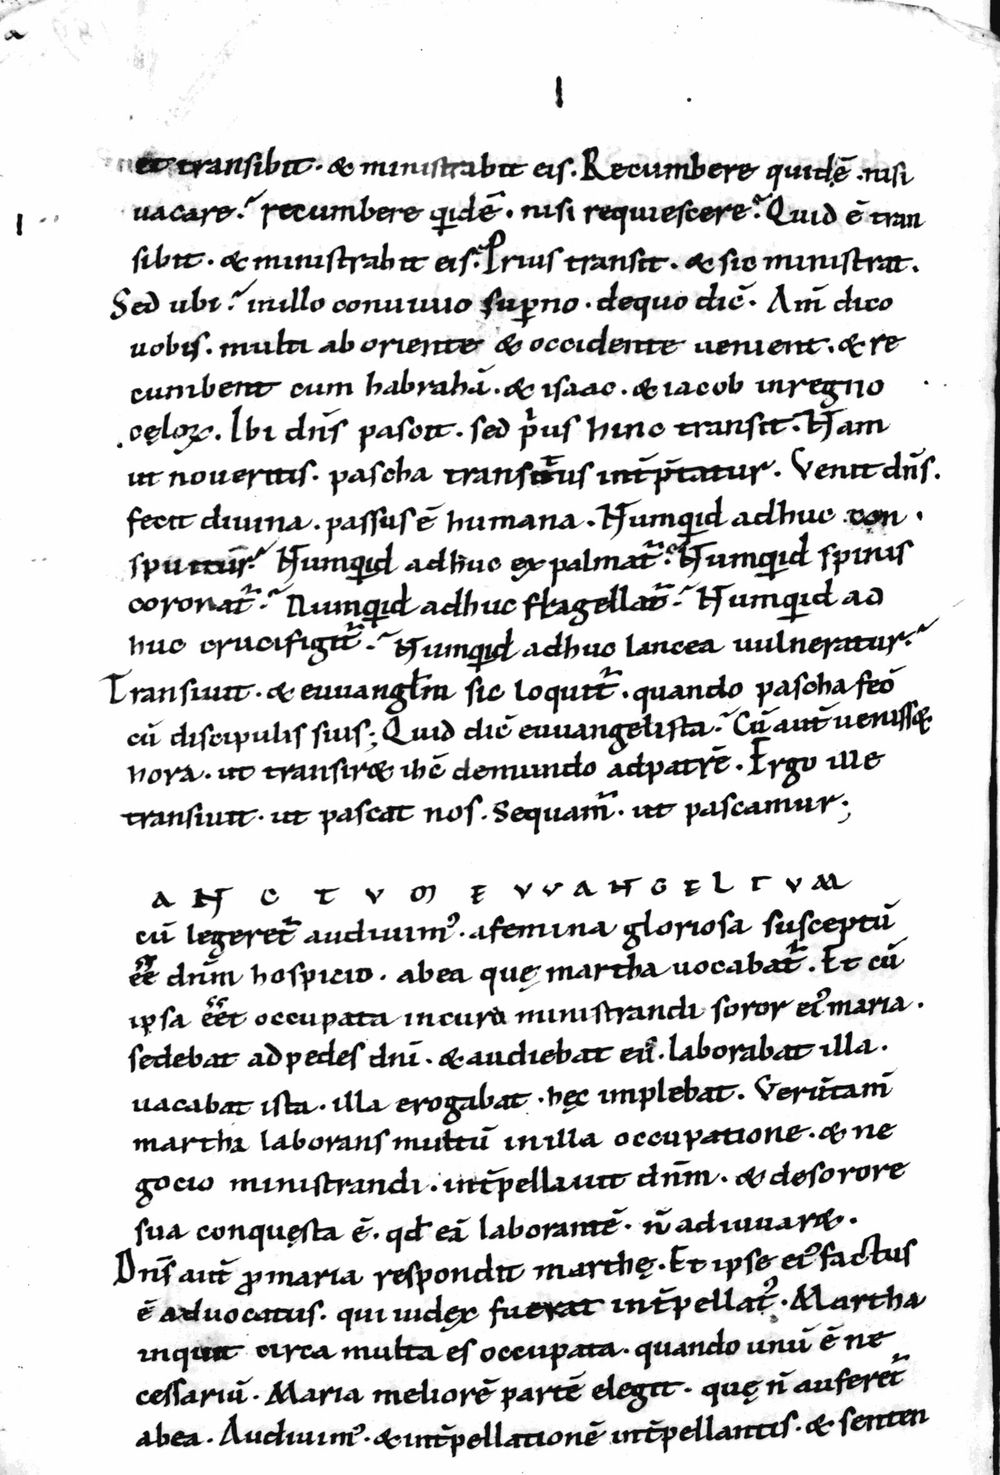 I
et transibit · & ministrabit eis · Recumbere quidẽ · nisi
uacare? recumbere qidẽ · nisi requiescere? Quid ẽ tran
sibit · & ministrabit eis? Prius transit · & sic ministrat ·
Sed ubi? inillo conuiuio supno · dequo dic̃ · Am̃ dico
uobis · multi ab oriente & occidente uenient · & re
cumbent cum habrahã · & isaac · & iacob inregno
cęloꝝ · Ibi dñs pascit · sed pius hinc transit · Nam
ut noueritis · pascha transitus int̃p̃tatur · Venit dñs ·
fecit diuina · passus ẽ humana · Numqid adhuc con
spuitur? Numqid adhuc expalmat̃? Numqid spinis
coronat̃? Numqid adhuc flagellat̃? Numqid ad
huc crucifigit̃? Numqid adhuc lancea uulneratur?
Transiuit · & euuanglm̃ sic loquit̃ · quando pascha fec̃
cũ discipulis suis; Quid dic̃ euuangelista? Cũ aut̃ ueniss&
hora · ut transir& ihc̃ demundo adpatrẽ · Ergo ille
transiuit · ut pascat nos · Sequam̃ · ut pascamur;
ANCTVM EVVANGELIVM
cũ legeret̃ audiuim᾽ · afemina gloriosa susceptũ
ẽẽ dnm̃ hospicio · abea quę martha uocabat̃ · Et cũ
ipsa ẽẽt occupata incura ministrandi soror ei᾽ maria ·
sedebat adpedes dnĩ · & audiebat eũ · laborabat illa ·
uacabat ista · illa erogabat · hęc implebat · Verũtam̃
martha laborans multũ inilla occupatione · & ne
gocio ministrandi · int̃pellauit dnm̃ · & desorore
sua conquęsta ẽ · qd eã laborantẽ · ñ adiuuar& ·
Dñs aut̃ ꝓmaria respondit marthę · Et ipse ei᾽ factus
ẽ aduocatus · qui iudex fuerat int̃pellat᾽ · Martha
inquit circa multa es occupata · quando unũ ẽ ne
cessariũ · Maria meliorẽ partẽ elegit · quę ñ auferet̃
abea · Audiuim᾽ · & int̃pellationẽ int̃pellantis · & senten